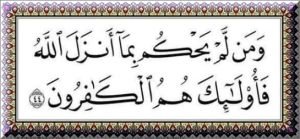 وَمَن لَّمْ يَحْكُم بِمَآ أَنزَلَ اللَّهُ
فَأُوْلَـٰٓئِكَ هُمُ الْكَـٰفِرُونَ ٤٤